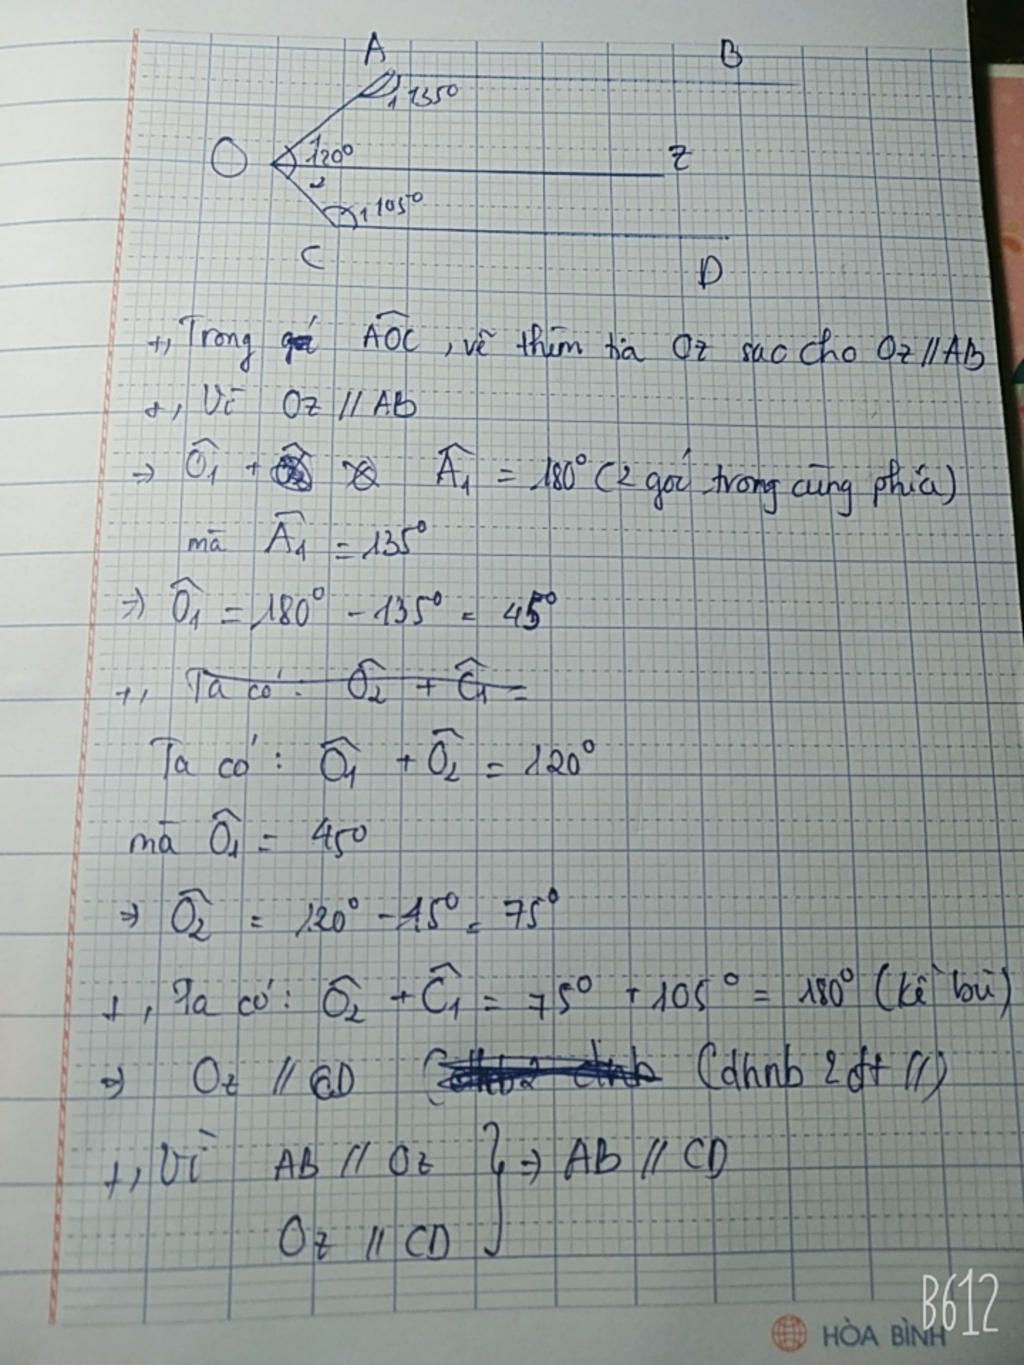 A B
1 135°
O 1 120° z
2
1 105°
C D
+, Trong góc AOC, vẽ thêm tia Oz sao cho Oz // AB
+, Vì Oz // AB
=> Ô1 + Â1 = 180° (2 góc trong cùng phía)
mà Â1 = 135°
=> Ô1 = 180° - 135° = 45°
+, Ta có: Ô2 + Ĉ1 =
Ta có: Ô1 + Ô2 = 120°
mà Ô1 = 45°
=> Ô2 = 120° - 45° = 75°
+, Ta có: Ô2 + Ĉ1 = 75° + 105° = 180° (kề bù)
=> Oz // CD (dhnb 2 đt //)
+, Vì AB // Oz } => AB // CD
Oz // CD
B612
HÒA BÌNH